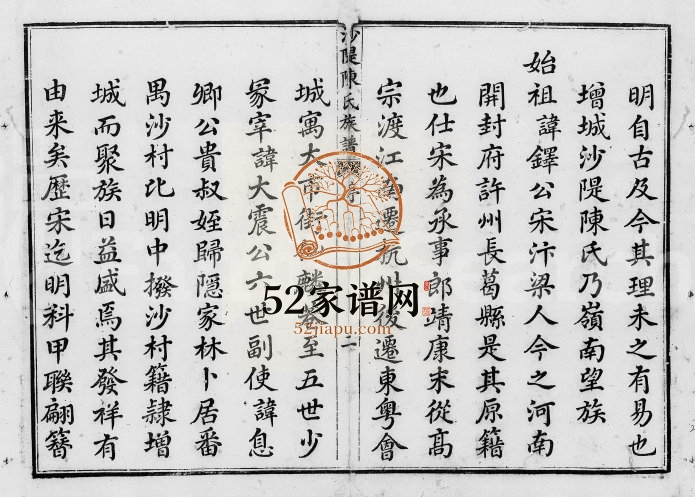 明自古及今其理未之有易也
增城沙隄陳氏乃嶺南望族
始祖諱鐸公宋汴梁人今之河南
開封府許州長葛縣是其原籍
也仕宋為承事郎靖康末從高
宗渡江而遷杭州後遷東粵會
沙隄陳氏族譜
二
城寓大市街
至五世少
冢宰諱大震公六世副使諱息
卿公貴叔姪歸隱家林卜居番
禺沙村比明中撥沙村籍隸增
城而聚族日益盛焉其發祥有
由来矣歷宋迄明科甲聯翩簪
52家谱网
52jiapu.com